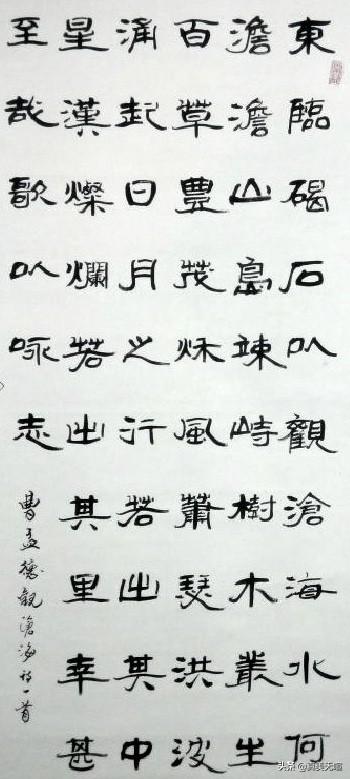 東臨碣石以觀滄海水何
澹澹山島竦峙樹木叢生
百草豐茂秋風蕭瑟洪波
涌起日月之行若出其中
星漢燦爛若出其里幸甚
至哉歌以咏志
曹孟德觀滄海詩一首
头条